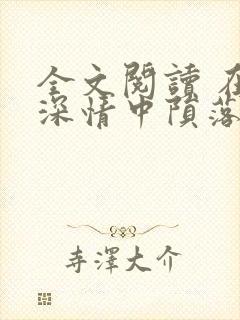 全文閱讀 在
深情中隕落
寺澤大介